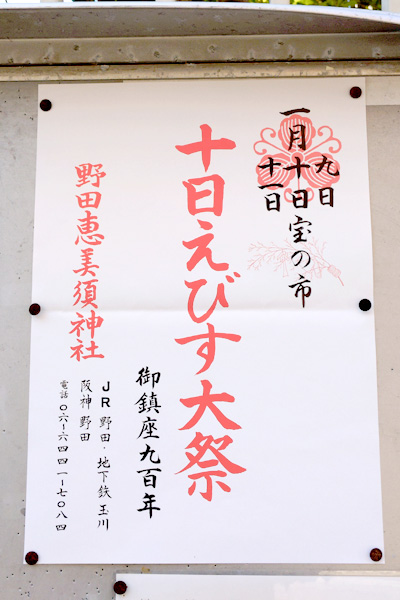 一月九日十日十一日宝の市
十日えびす大祭
御鎮座九百年
野田恵美須神社
JR野田・地下鉄玉川
阪神野田
電話〇六ー六四四一ー七〇八四